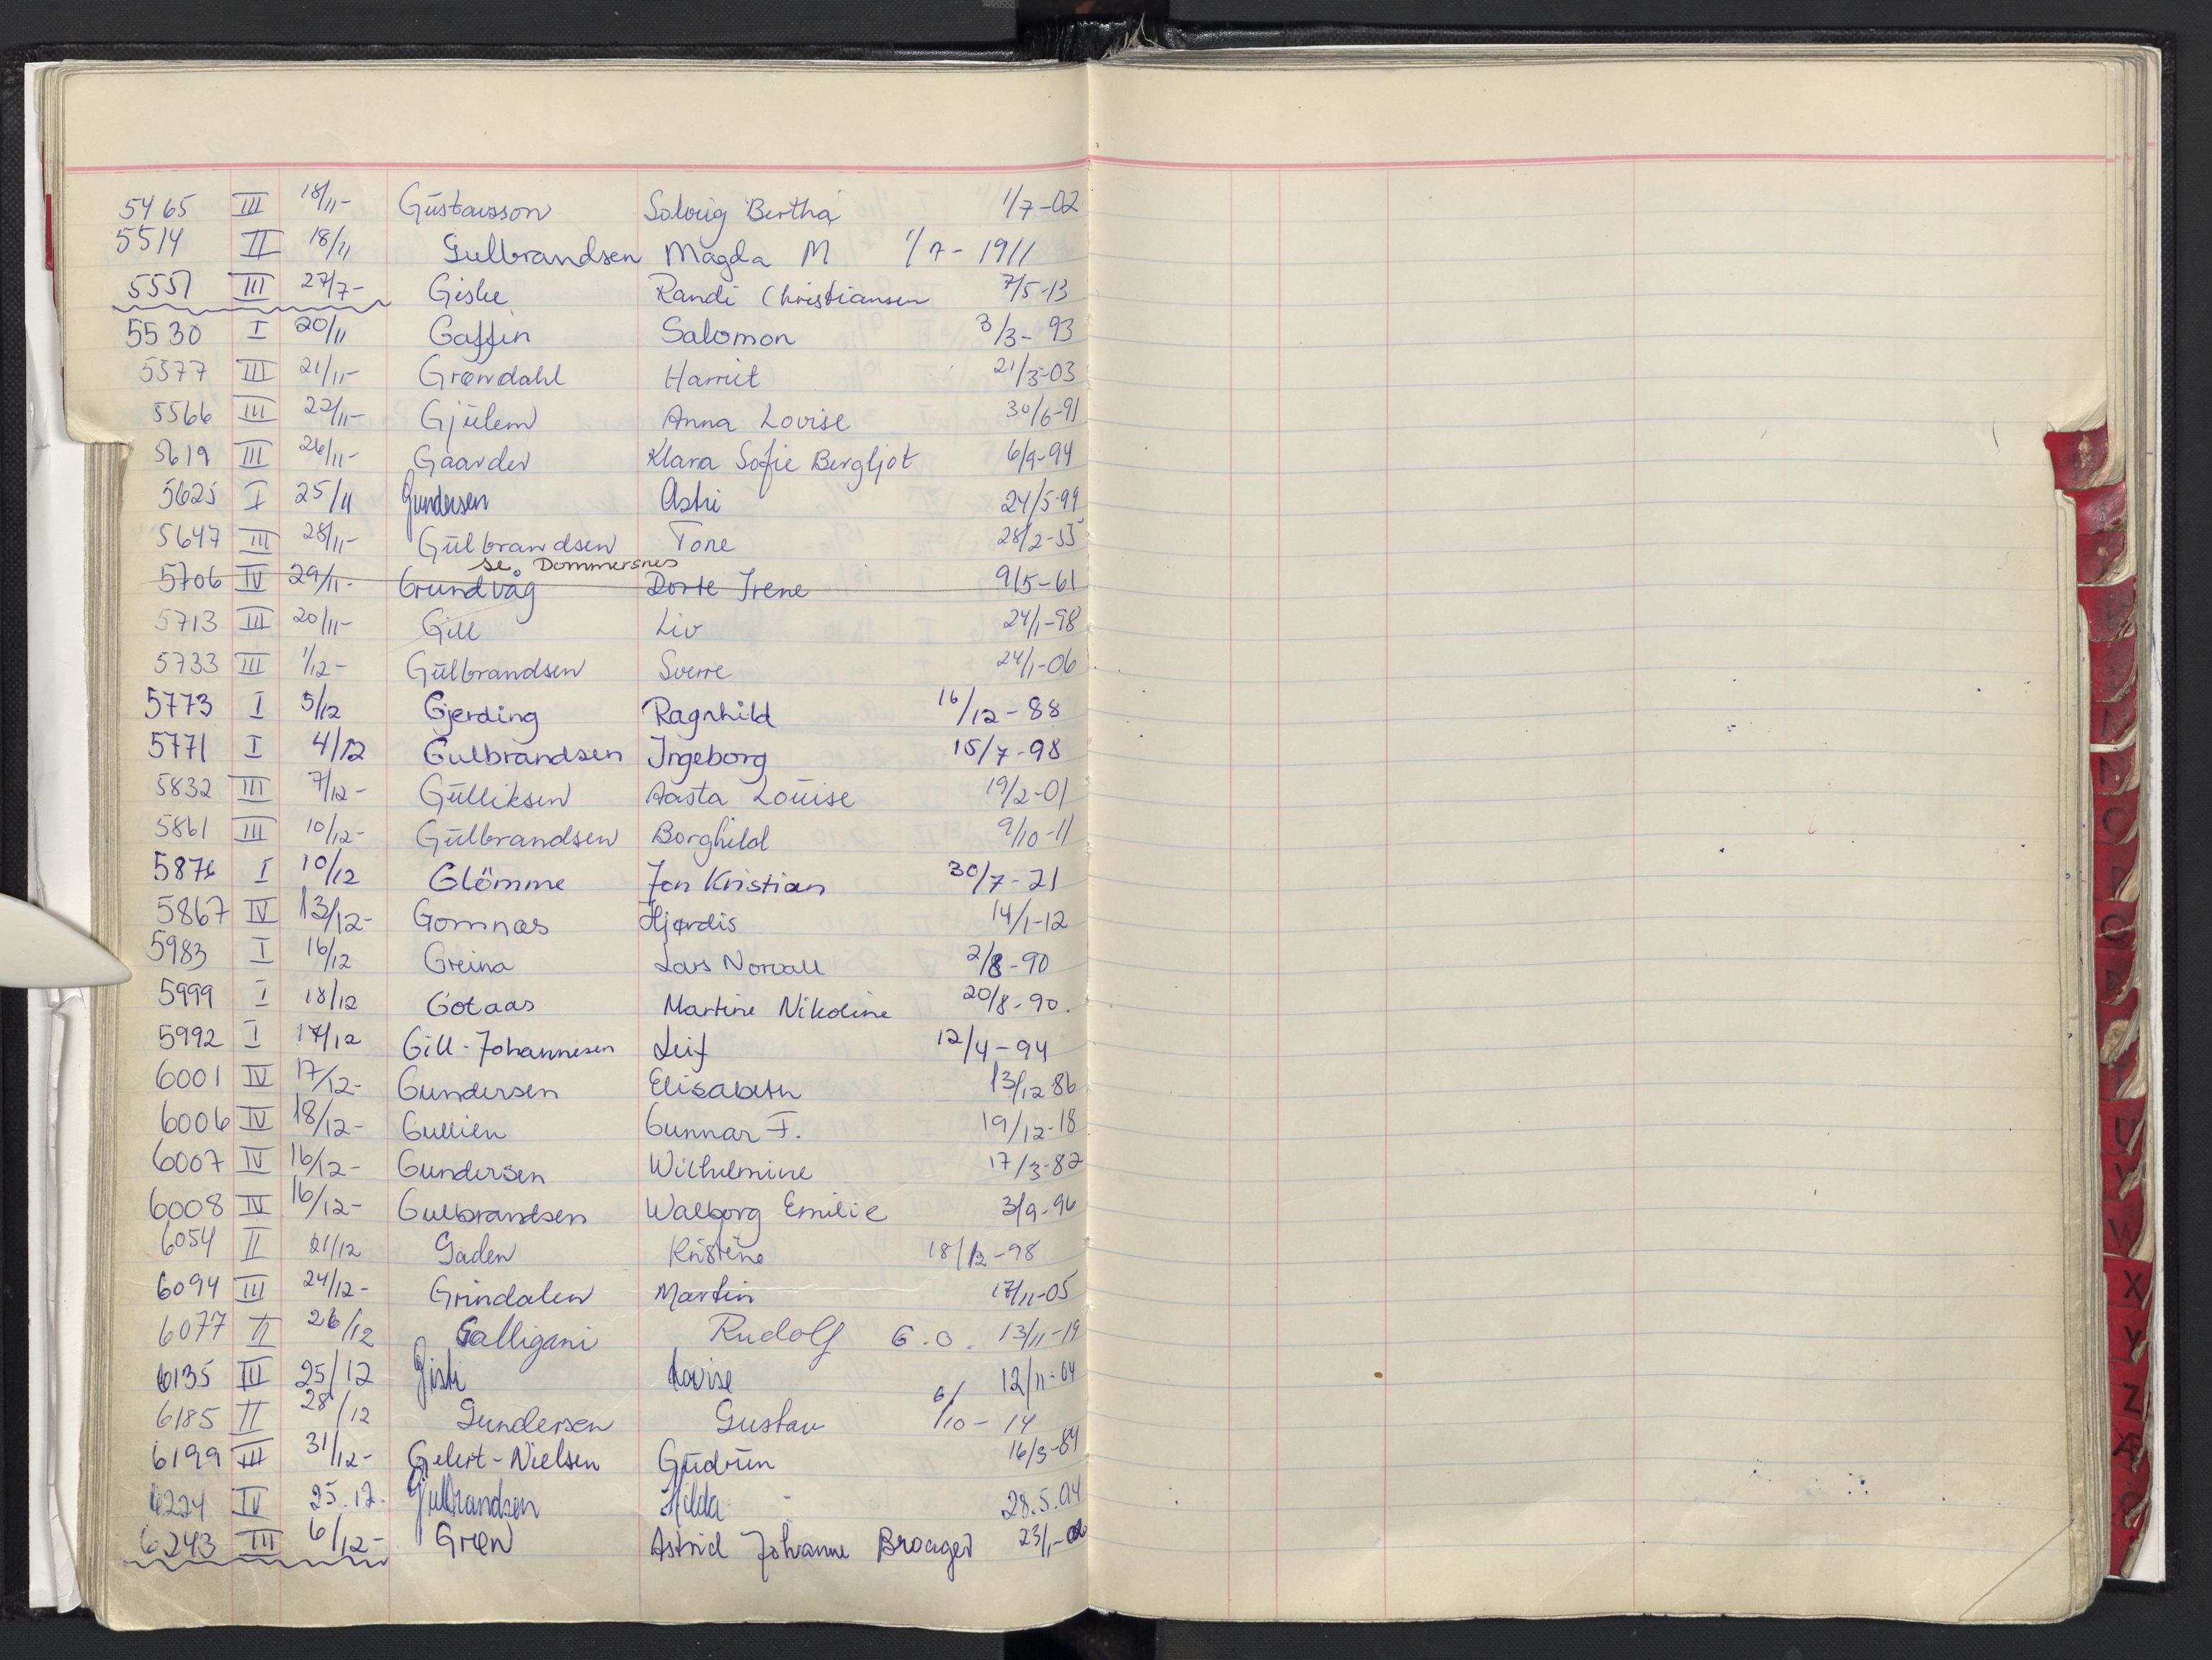 5465 III 18/11- Gustavsson Solveig Bertha 1/7-02
5514 II 18/11 Gulbrandsen Magda M 1/7-1911
5551 III 27/7- Giske Randi Christiansen 7/5-13
5530 I 20/11 Gaffin Salomon 3/3-93
5577 III 21/11- Grøndahl Harriet 21/3-03
5566 III 22/11- Gjülem Anna Lovise 30/6-91
5619 III 26/11- Gaarder Klara Sofie Bergljot 6/9-94
5625 I 25/11 Gundersen Astri 24/5-99
5647 III 28/11- Gülbrandsen Tone 28/2-55
se. Dommersnes
5706 IV 29/11- Grundvåg Dorte Irene 9/5-61
5713 III 20/11- Gill Liv 24/1-98
5733 III 1/12- Gülbrandsen Sverre 24/1-06
5773 I 5/12 Gjerding Ragnhild 16/12-88
5771 I 4/12 Gulbrandsen Ingeborg 15/7-98
5832 III 7/12- Gülliksen Aasta Louise 19/2-01
5861 III 10/12- Gülbrandsen Borghild 9/10-11
5876 I 10/12 Glömme Jon Kristian 30/7-21
5867 IV 13/12- Gomnæs Hjørdis 14/1-12
5983 I 16/12 Greina Lars Norvall 2/8-90
5999 I 18/12 Gotaas Martine Nikoline 20/8-90.
5992 I 17/12 Gill-Johannesen Leif 12/4-94
6001 IV 17/12- Gundersen Elisabeth 13/12-86
6006 IV 18/12- Gullien Gunnar F. 19/12-18
6007 IV 16/12- Gundersen Wilhelmine 17/3-82
6008 IV 16/12- Gulbrandsen Walborg Emilie 3/9-96
6054 II 21/12 Gaden Kristine 18/12-98
6094 III 24/12- Grindalen Martin 17/11-05
6077 II 26/12 Galligani Rudolf G.O. 13/11-19
6135 III 25/12 Giske Lovise 12/11-04
6185 II 28/12 Gundersen Gustav 6/10-14
6199 III 31/12- Gelert-Nielsen Güdrün 16/3-84
6224 IV 25.12. Gulbrandsen Hilda 28.5.04
6243 III 6/12- Grøn Astrid Johanne Broager 23/1-
X
Y
Z
Æ
Ø